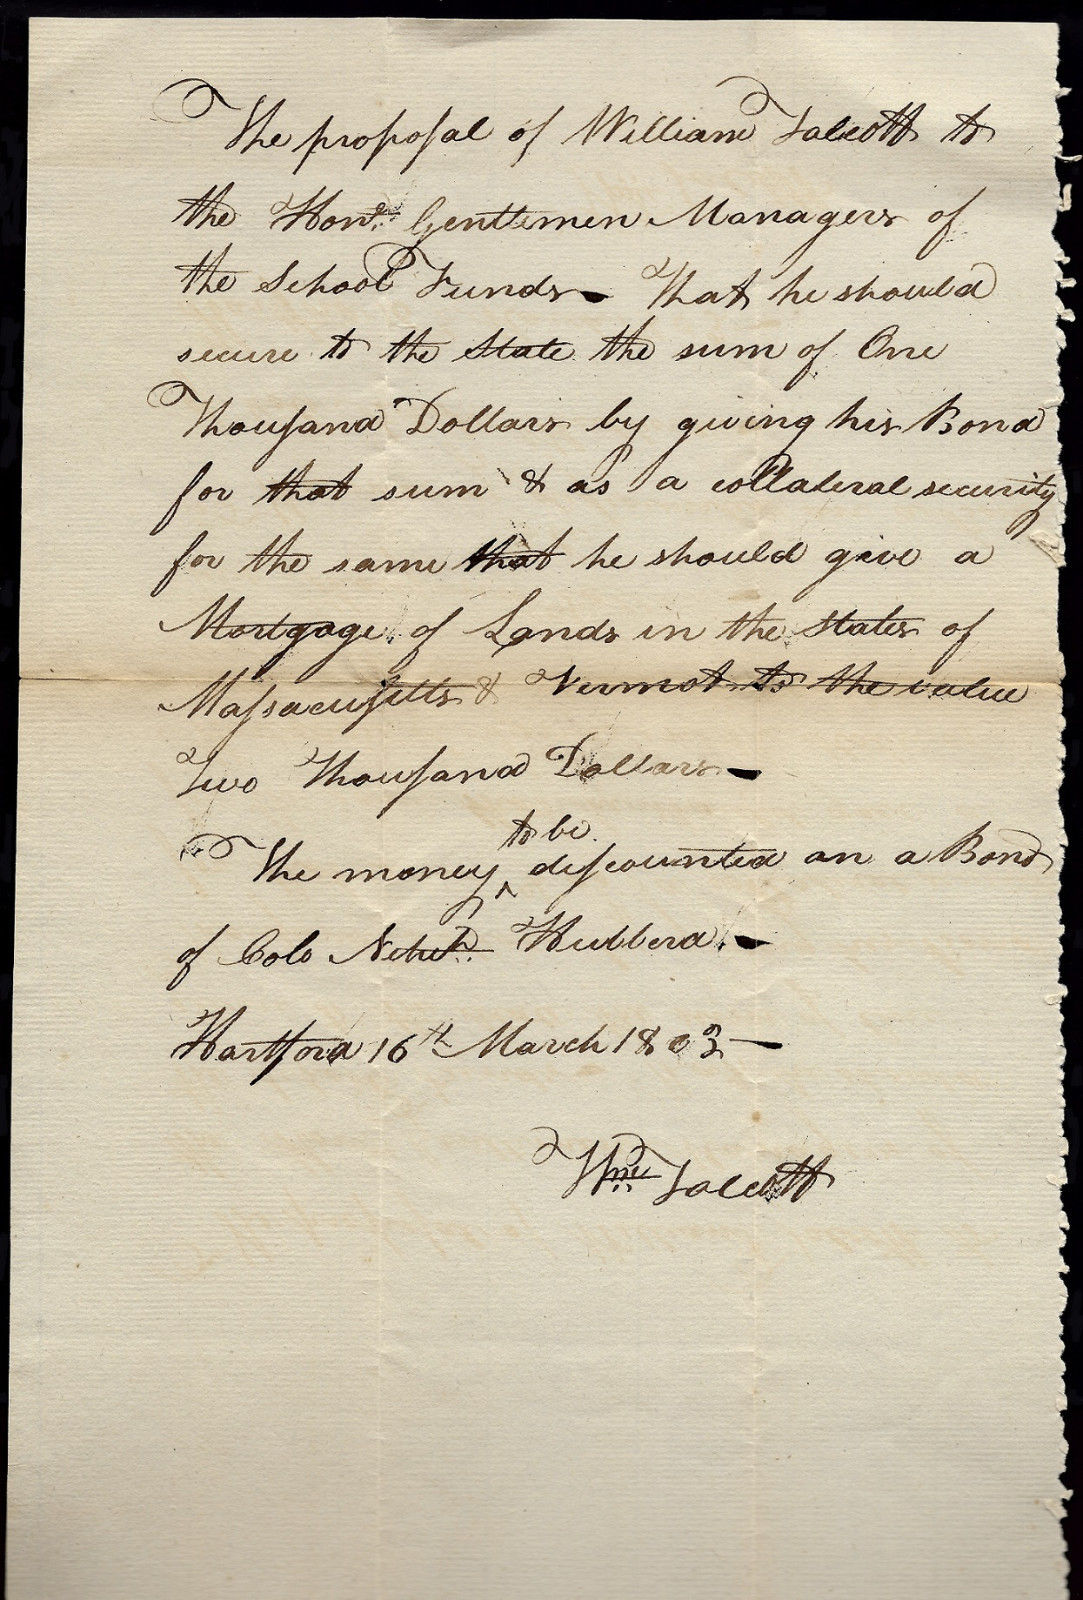 The proposal of William Talcott to
the Hon.ble Gentlemen Managers of
the School Funds — That he should
secure to the State the sum of One
Thousand Dollars by giving his Bond
for that sum & as a collateral security
for the same that he should give a
Mortgage of Lands in the States of
Massacusetts & Vermot to the value
Two Thousand Dollars —
to be
The money ^ discounted on a Bond
of Colo Nehh. Hubberd. —
Hartford 16th March 1803 —
Wm Talcott